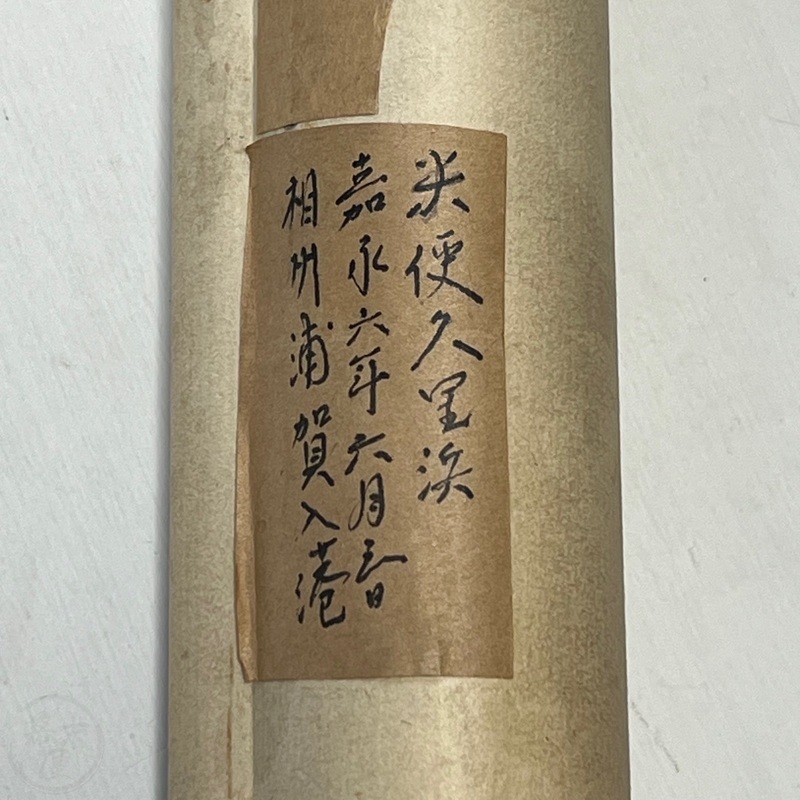 米使久里浜
嘉永六年六月三日
相州浦賀入港